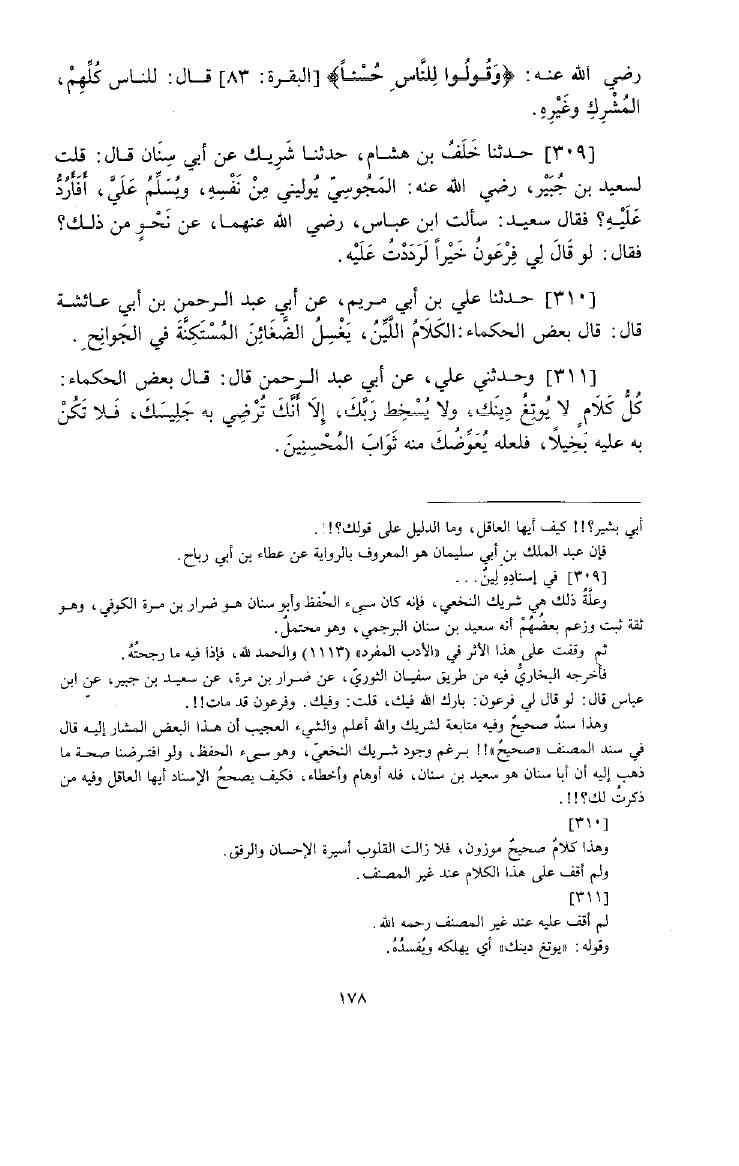 رضي الله عنه: ﴿وَقُولُوا لِلنَّاسِ حُسْناً﴾ [البقرة: ٨٣] قال: للناس كُلِّهِمْ،
المُشْرِكِ وغَيْرِهِ.
[٣٠٩] حدثنا خَلَفُ بن هشام، حدثنا شَرِيك عن أبي سِنَان قال: قلت
لسعيد بن جُبَيْر، رضي الله عنه: المَجُوسِيّ يُوليني مِنْ نَفْسِهِ، ويُسَلِّمُ عَلَيَّ، أَفَأَرُدُّ
عَلَيْهِ؟ فقال سعيد: سألت ابن عباس، رضي الله عنهما، عن نَحْوٍ من ذلك؟
فقال: لو قَالَ لي فِرْعَونُ خَيْراً لَرَدَدْتُ عَلَيْه.
[٣١٠] حدثنا علي بن أبي مريم، عن أبي عبد الرحمن بن أبي عائشة
قال: قال بعض الحكماء: الكَلَامُ اللَّيِّنُ، يَغْسِلُ الضَّغَائِنَ المُسْتَكِنَّةَ في الجَوانِحِ.
[٣١١] وحدثني علي، عن أبي عبد الرحمن قال: قال بعض الحكماء:
كُلُّ كَلَامٍ لا يُوتِغُ دِينَك، ولا يُسْخِط رَبَّكَ، إلا أَنَّكَ تُرْضِي به جَلِيسَكَ، فَلا تَكُنْ
به عليه بَخِيلاً، فلعله يُعَوِّضُكَ منه ثَوَابَ المُحْسِنِينَ.
أبي بشير؟!! كيف أيها العاقل، وما الدليل على قولك؟!!.
فإن عبد الملك بن أبي سليمان هو المعروف بالرواية عن عطاء بن أبي رباح.
[٣٠٩] في إسنادِهِ لِينٌ...
وعلَّةُ ذلك هي شريك النخعي، فإنه كان سيىء الحُفظ وأبو سنان هو ضرار بن مرة الكوفي، وهو
ثقة ثبت وزعم بعضُهُمْ أنه سعيد بن سنان البرجمي، وهو محتملٌ.
ثم وقفت على هذا الأثر في «الأدب المفرد» (١١١٣) والحمد لله، فإذا فيه ما رجحتُهُ.
فأخرجه البخاريُّ فيه من طريق سفيان الثوريّ، عن ضرار بن مرة، عن سعيد بن جبير، عن ابن
عباس قال: لو قال لي فرعون: بارك الله فيك، قلت: وفيك. وفرعون قد مات!!.
وهذا سندٌ صحيحٌ وفيه متابعة لشريك والله أعلم والشيء العجيب أن هذا البعض المشار إليه قال
في سند المصنف «صحيحٌ»!! برغم وجود شريك النخعيّ، وهو سيىء الحفظ، ولو افترضنا صحة ما
ذهب إليه أن أبا سنان هو سعيد بن سنان، فله أوهام وأخطاء، فكيف يصححُ الإسناد أيها العاقل وفيه من
ذكرتُ لك؟!!.
[٣١٠]
وهذا كلامٌ صحيحٌ موزون، فلا زالت القلوب أسيرة الإحسان والرفق.
ولم أقف على هذا الكلام عند غير المصنف.
[٣١١]
لم أقف عليه عند غير المصنف رحمه الله.
وقوله: «يوتغ دينك» أي يهلكه ويُفسدُهُ.
١٧٨